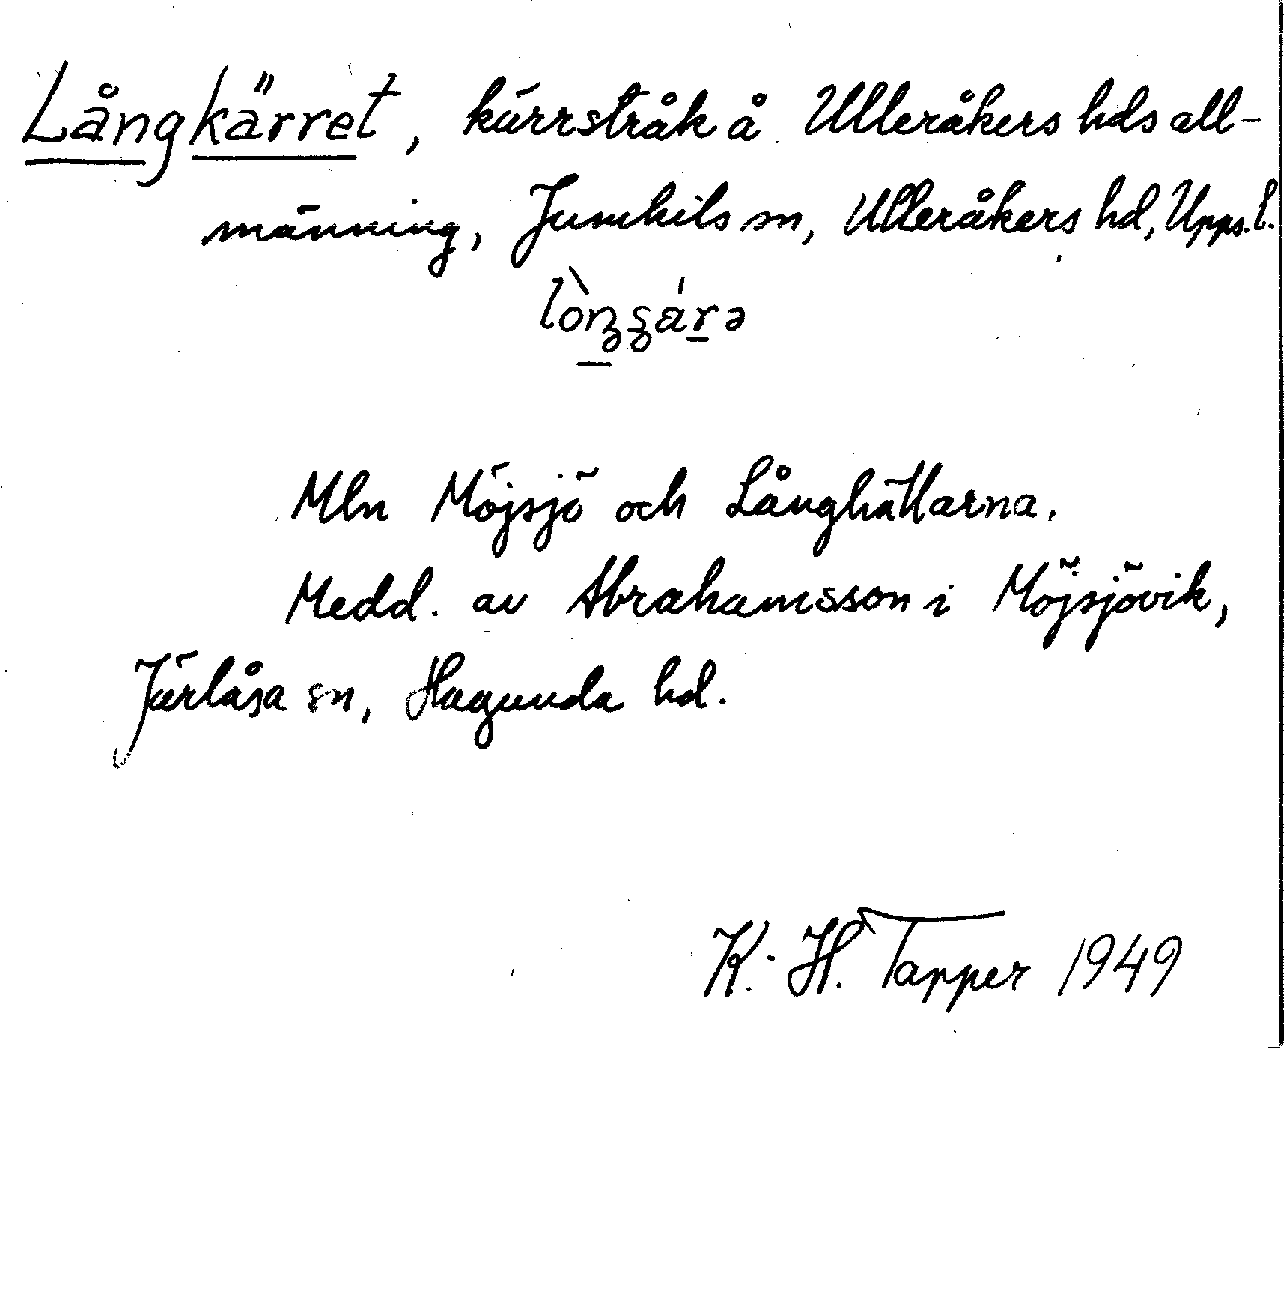 Långkärret, kärrstråk å Ulleråkers hds all-
männing, Jumkils sn, Ulleråkers hd, Upps. l.
Mln Möjsjö och Långhällarna.
Medd. av Abrahamsson i Möjsjövik,
Järlåsa sn, Hagunda hd.
K. H. Tapper 1949